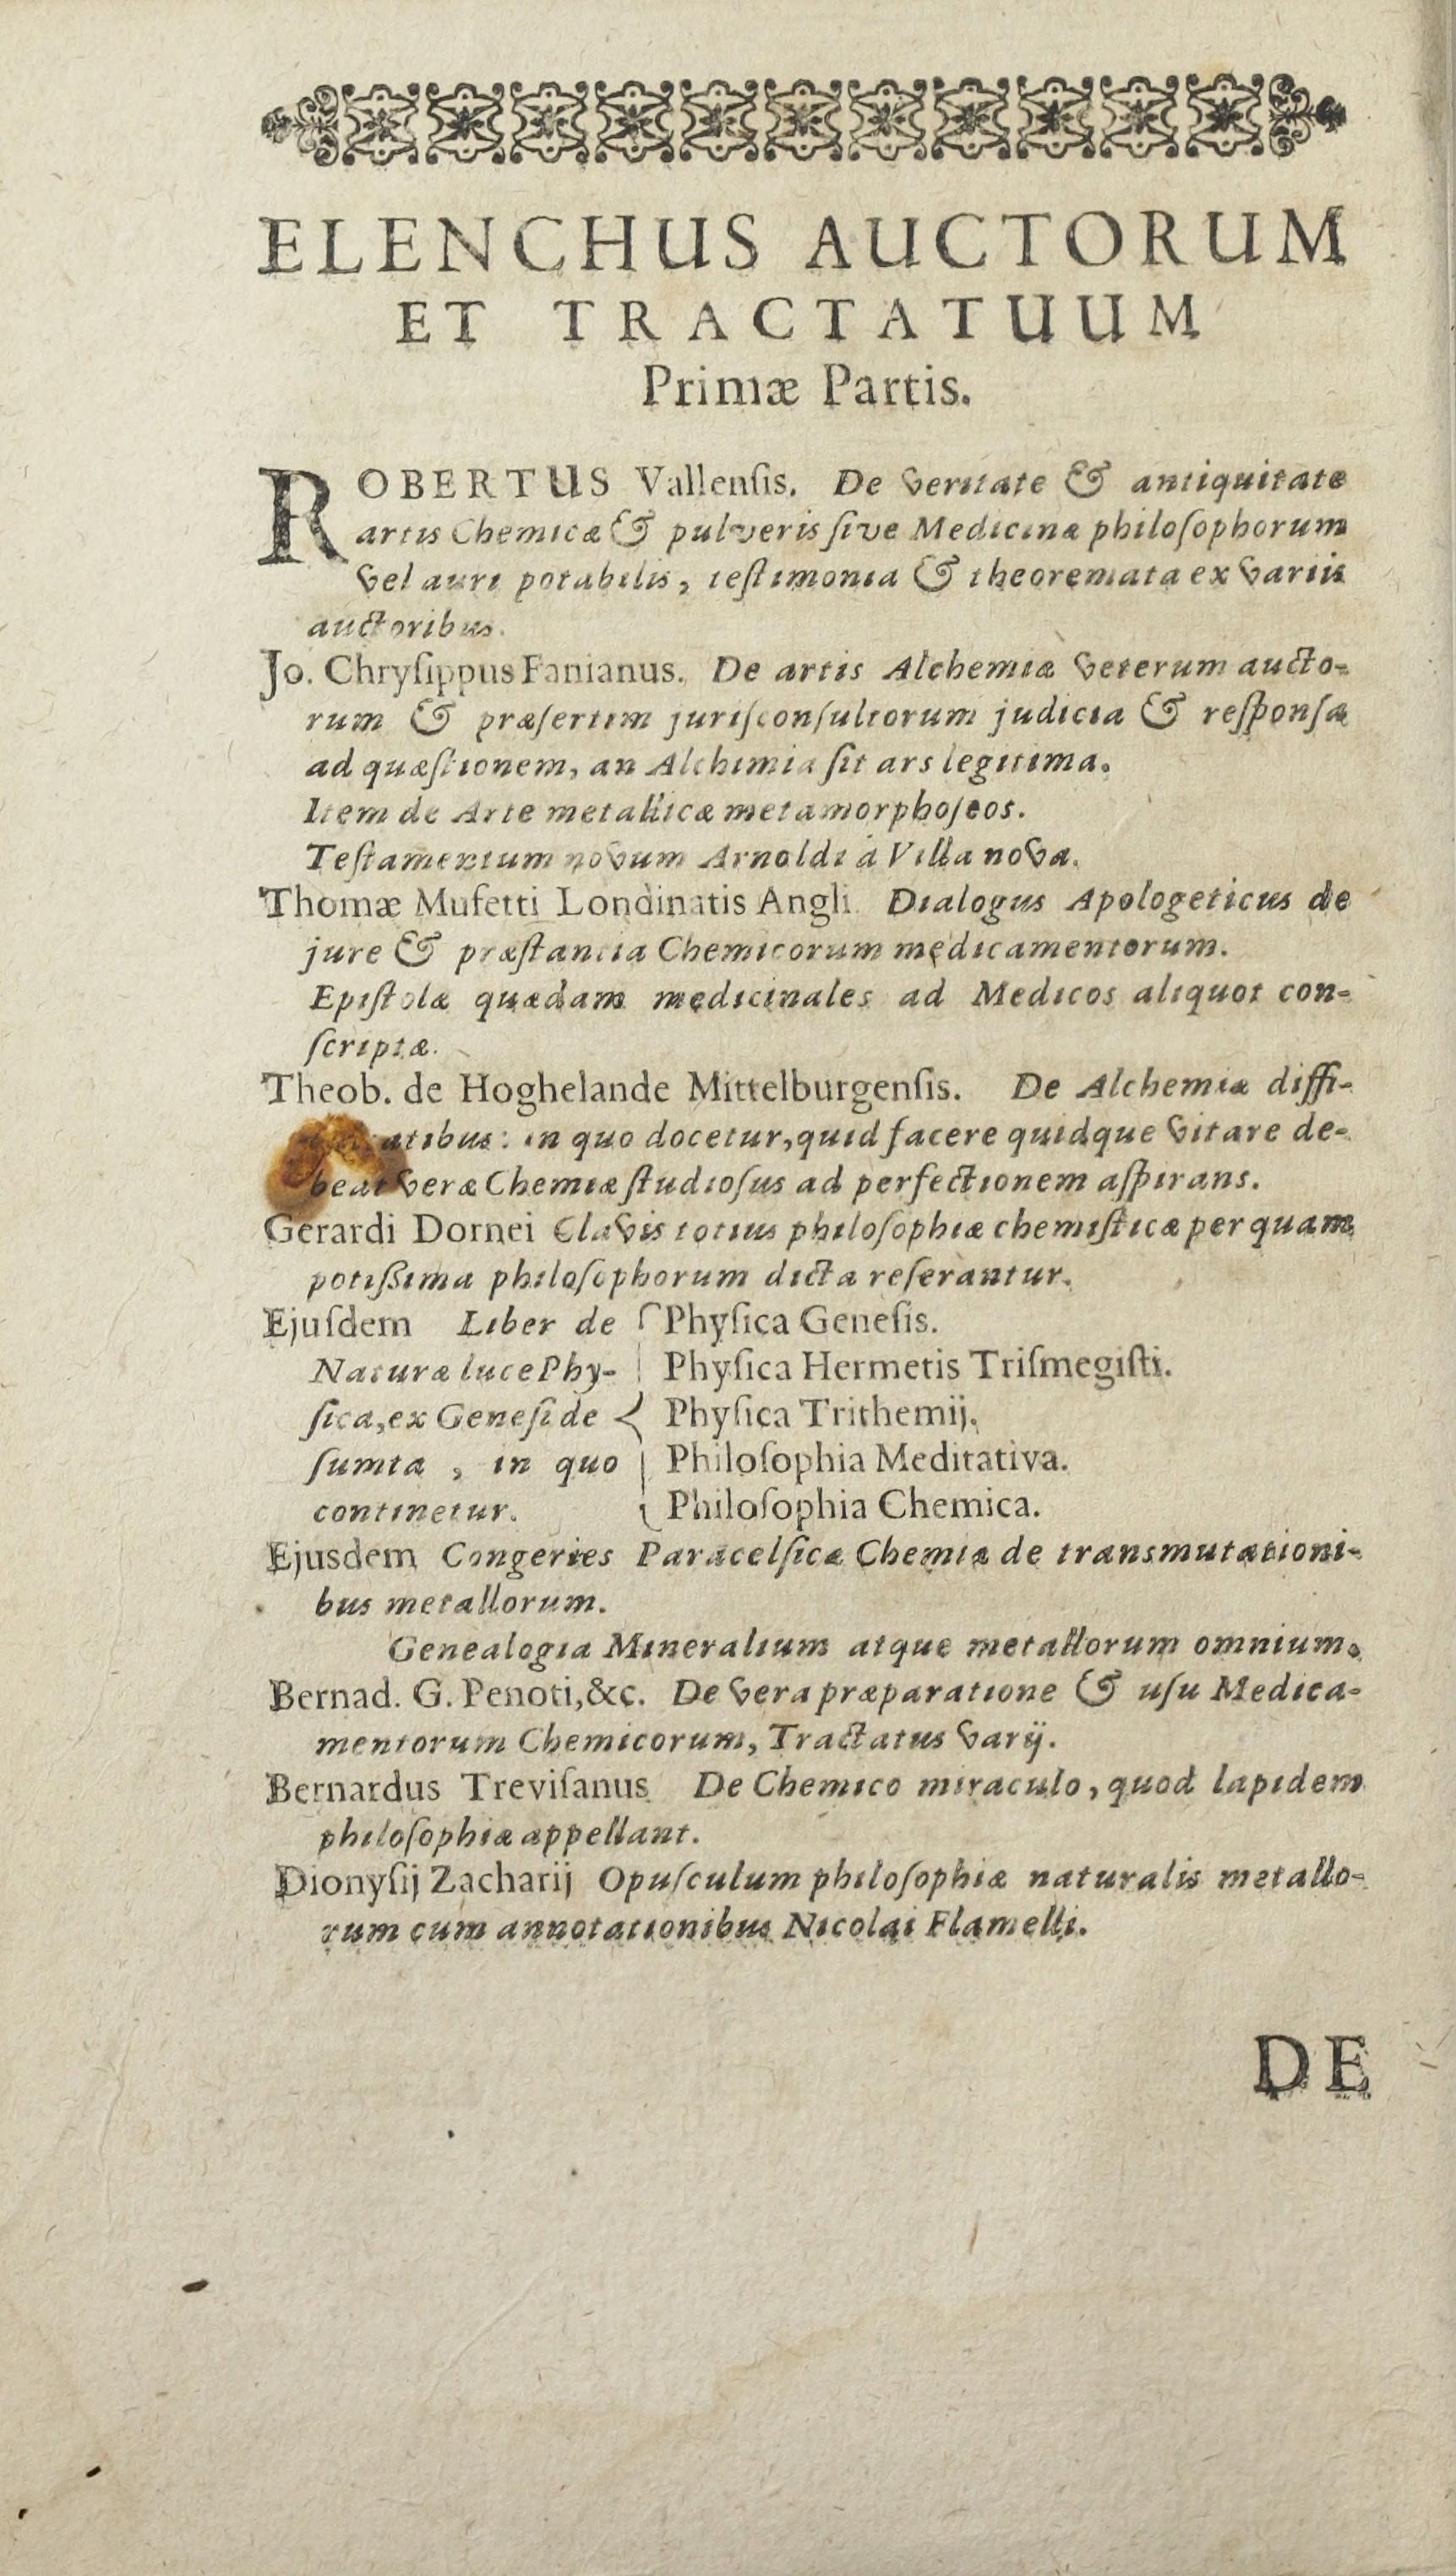 ELENCHUS AUCTORUM
ET TRACTATUUM
Primæ Partis.
ROBERTUS Vallenſis. De veritate & antiquitate
artis Chemicæ & pulveris ſive Medicinæ philoſophorum
vel auri potabilis, teſtimonia & theoremata ex variis
auctoribus.
Jo. Chryſippus Fanianus. De artis Alchemiæ veterum aucto-
rum & præſertim juriſconſultorum judicia & reſponſa
ad quæſtionem, an Alchimia ſit ars legitima.
Item de Arte metallicæ metamorphoſeos.
Teſtamentum novum Arnoldi à Villa nova.
Thomæ Mufetti Londinatis Angli. Dialogus Apologeticus de
jure & præſtantia Chemicorum medicamentorum.
Epiſtolæ quædam medicinales ad Medicos aliquot con-
ſcriptæ.
Theob. de Hoghelande Mittelburgenſis. De Alchemiæ diffi-
atibus: in quo docetur, quid facere quidque vitare de-
beat veræ Chemiæ ſtudioſus ad perfectionem aſpirans.
Gerardi Dornei Clavis totius philoſophiæ chemiſticæ per quam
potißima philoſophorum dicta reſerantur.
Ejuſdem Liber de Phyſica Geneſis.
Naturæ luce Phy- Phyſica Hermetis Triſmegiſti.
ſica, ex Geneſi de Phyſica Trithemij.
ſumta, in quo Philoſophia Meditativa.
continetur. Philoſophia Chemica.
Ejusdem Congeries Paracelſicæ Chemiæ de transmutationi-
bus metallorum.
Genealogia Mineralium atque metallorum omnium.
Bernad. G. Penoti, &c. De vera præparatione & uſu Medica-
mentorum Chemicorum, Tractatus varij.
Bernardus Treviſanus De Chemico miraculo, quod lapidem
philoſophiæ appellant.
Dionyſij Zacharij Opuſculum philoſophiæ naturalis metallo-
rum cum annotationibus Nicolai Flamelli.
DE